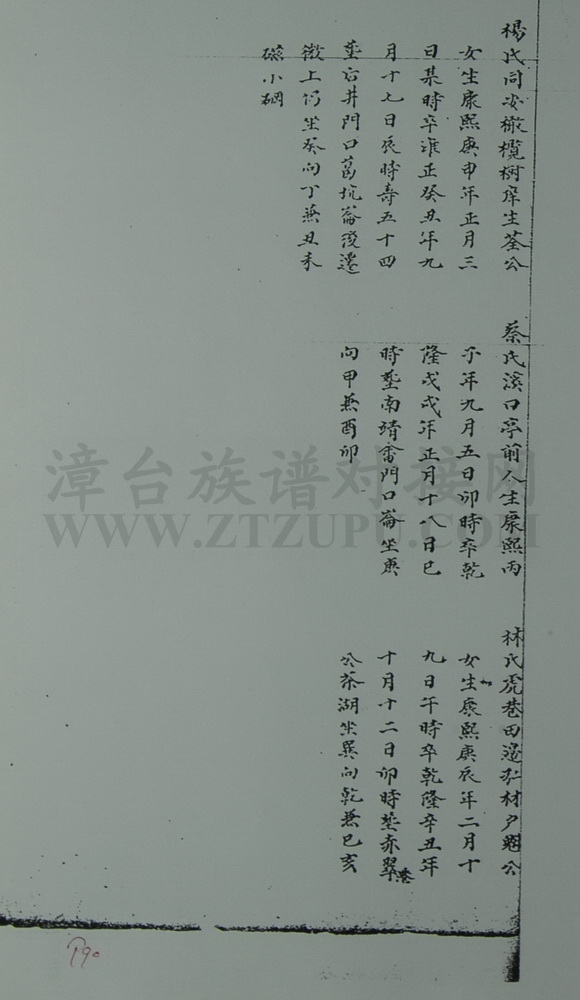 楊氏同安橄欖樹庠生荃公
女生康熙庚申年正月三
日某時卒雍正癸丑年九
月十七日辰時壽五十四
塟石井門口葛坑崙後遷
嶶上仍坐癸向丁兼丑未
磁小硎
蔡氏溪口亭前人生康熙丙
子年九月五日卯時卒乾
隆戊戌年正月十八日巳
時塟南靖畬門口崙坐庚
向甲兼酉卯
林氏虎巷田邊 材户 公
女生康熙庚辰年二月十
九日午時卒乾隆辛丑年
十月十二日卯時塟赤翠
公茶湖坐巽向乾兼巳亥
漳台族谱对接网
WWW.ZTZUPU.COM
P90